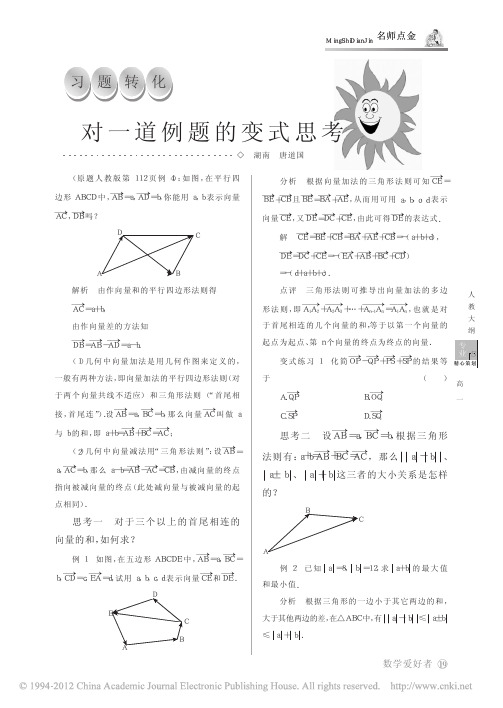 MingShiDianJin 名师点金
习题转化
对一道例题的变式思考
◇ 湖南 唐道国
(原题人教版第 112页例 4):如图,在平行四
边形 ABCD中,AB=a,AD=b,你能用 a、b表示向量
AC,DB吗?
D
C
A
B
解析 由作向量和的平行四边形法则得
AC=a+b,
由作向量差的方法知
DB=AB-AD=a-b.
(1)几何中向量加法是用几何作图来定义的,
一般有两种方法,即向量加法的平行四边形法则(对
于两个向量共线不适应)和三角形法则(“首尾相
接,首尾连”).设AB=a,BC=b,那么向量AC叫做 a
与 b的和,即 a+b=AB+BC=AC;
(2)几何中向量减法用“三角形法则”:设AB=
a,AC=b,那么 a-b=AB-AC=CB,由减向量的终点
指向被减向量的终点(此处减向量与被减向量的起
点相同).
思考一 对于三个以上的首尾相连的
向量的和,如何求?
例 1 如图,在五边形 ABCDE中,AB=a,BC=
b,CD=c,EA=d,试用 a、b、c、d表示向量CE和DE.
D
E
C
B
A
分析 根据向量加法的三角形法则可知CE=
BE+CB且BE=BA+AE,从而用可用 a、b、c、d表示
向量CE,又DE=DC+CE,由此可得DE的表达式.
解 CE=BE+CB=BA+AE+CB=-(a+b+d),
DE=DC+CE=-(EA+AB+BC+CD)
=-(d+a+b+c).
点评 三角形法则可推导出向量加法的多边
形法则,即A1A2+A2A3+…+An-1An=A1An,也就是对
于首尾相连的几个向量的和,等于以第一个向量的
起点为起点、第 n个向量的终点为终点的向量.
变式练习 1 化简OP-QP+PS+SP的结果等
于 ( )
A.QP B.OQ
C.SP D.SQ
思考二 设AB=a,BC=b,根据三角形
法则有:a+b=AB+BC=AC, 那么||a|-|b||、
|a±b|、|a|+|b|这三者的大小关系是怎样
的?
B
C
A
例 2 已知|a|=8,|b|=12,求|a+b|的最大值
和最小值.
分析 根据三角形的一边小于其它两边的和,
大于其他两边的差,在△ABC中,有||a|-|b||≤|a±b|
≤|a|+|b|.
人教大纲
精心策划
高一
数学爱好者 19
© 1994-2012 China Academic Journal Electronic Publishing House. All rights reserved. http://www.cnki.net